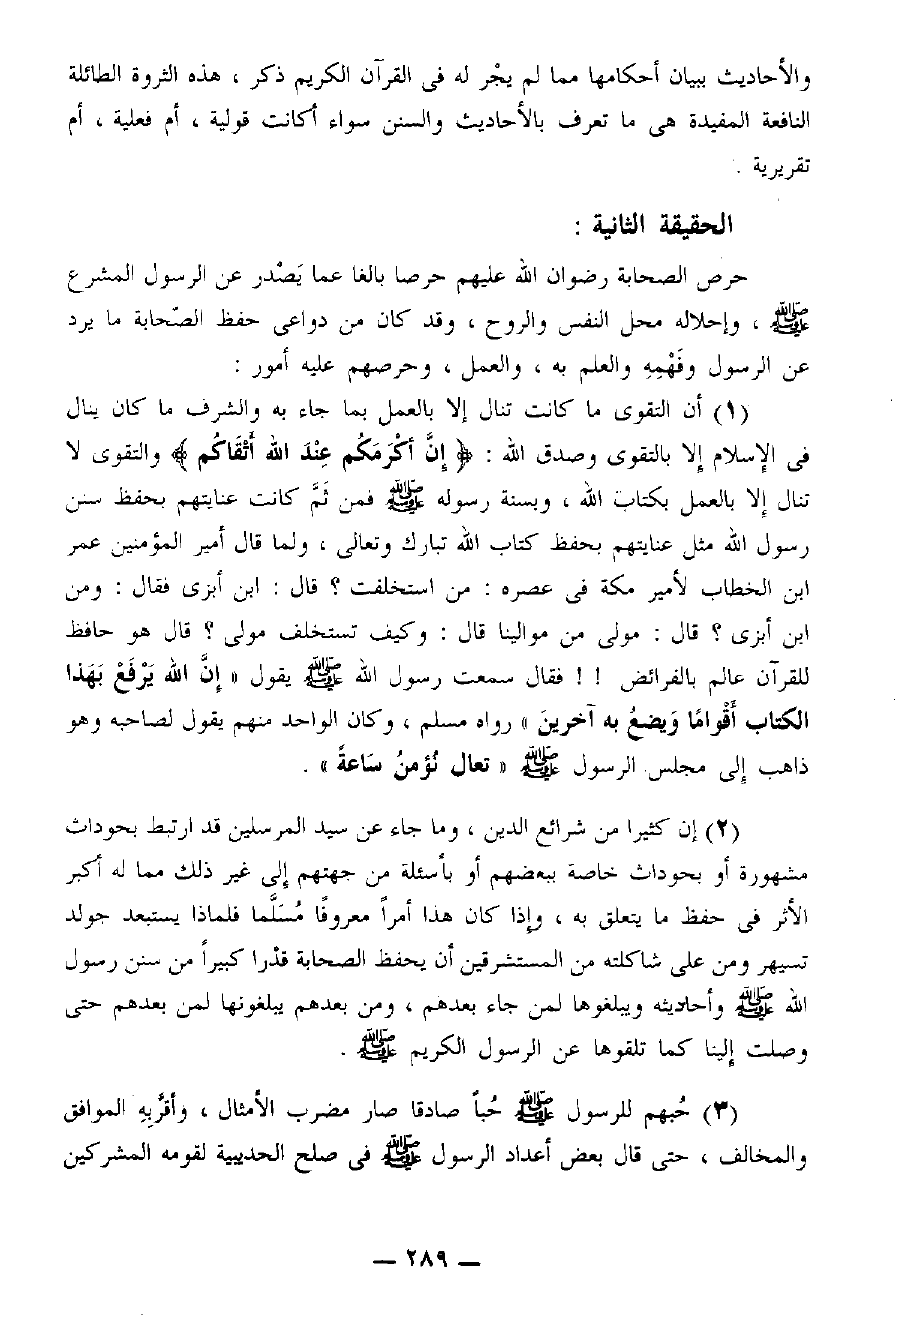 والأحاديث ببيان أحكامها مما لم يجْر له فى القرآن الكريم ذكر ، هذه الثروة الطائلة
النافعة المفيدة هى ما تعرف بالأحاديث والسنن سواء أكانت قولية ، أم فعلية ، أم
تقريرية .
الحقيقة الثانية :
حرص الصحابة رضوان الله عليهم حرصا بالغا عما يَصْدر عن الرسول المشرع
ﷺ ، وإحلاله محل النفس والروح ، وقد كان من دواعى حفظ الصّحابة ما يرد
عن الرسول وفَهْمِهِ والعلم به ، والعمل ، وحرصهم عليه أمور :
(١) أن التقوى ما كانت تنال إلا بالعمل بما جاء به والشرف ما كان ينال
فى الإسلام إلا بالتقوى وصدق الله : ﴿ إِنَّ أَكْرَمَكُم عِنْدَ الله أَتْقَاكُم ﴾ والتقوى لا
تنال إلا بالعمل بكتاب الله ، وبسنة رسوله ﷺ فمن ثَمَّ كانت عنايتهم بحفظ سنن
رسول الله مثل عنايتهم بحفظ كتاب الله تبارك وتعالى ، ولما قال أمير المؤمنين عمر
ابن الخطاب لأمير مكة فى عصره : من استخلفت ؟ قال : ابن أبزى فقال : ومن
ابن أبزى ؟ قال : مولى من موالينا قال : وكيف تستخلف مولى ؟ قال هو حافظ
للقرآن عالم بالفرائض ! ! فقال سمعت رسول الله ﷺ يقول « إِنَّ الله يَرْفَعْ بَهَذا
الكتاب أَقْوامًا وَيضعُ به آخرينَ » رواه مسلم ، وكان الواحد منهم يقول لصاحبه وهو
ذاهب إلى مجلس الرسول ﷺ « تعال نُؤمنُ سَاعةً » .
(٢) إن كثيرا من شرائع الدين ، وما جاء عن سيد المرسلين قد ارتبط بحودات
مشهورة أو بحودات خاصة ببعضهم أو بأسئلة من جهتهم إلى غير ذلك مما له أكبر
الأثر فى حفظ ما يتعلق به ، وإذا كان هذا أمراً معروفًا مُسَلَّما فلماذا يستبعد جولد
تسيهر ومن على شاكلته من المستشرقين أن يحفظ الصحابة قدْرا كبيراً من سنن رسول
الله ﷺ وأحاديثه ويبلغوها لمن جاء بعدهم ، ومن بعدهم يبلغونها لمن بعدهم حتى
وصلت إلينا كما تلقوها عن الرسول الكريم ﷺ .
(٣) حُبهم للرسول ﷺ حُباً صادقا صار مضرب الأمثال ، وأقرَّبِهِ الموافق
والمخالف ، حتى قال بعض أعداد الرسول ﷺ فى صلح الحديبية لقومه المشركين
— ٢٨٩ —